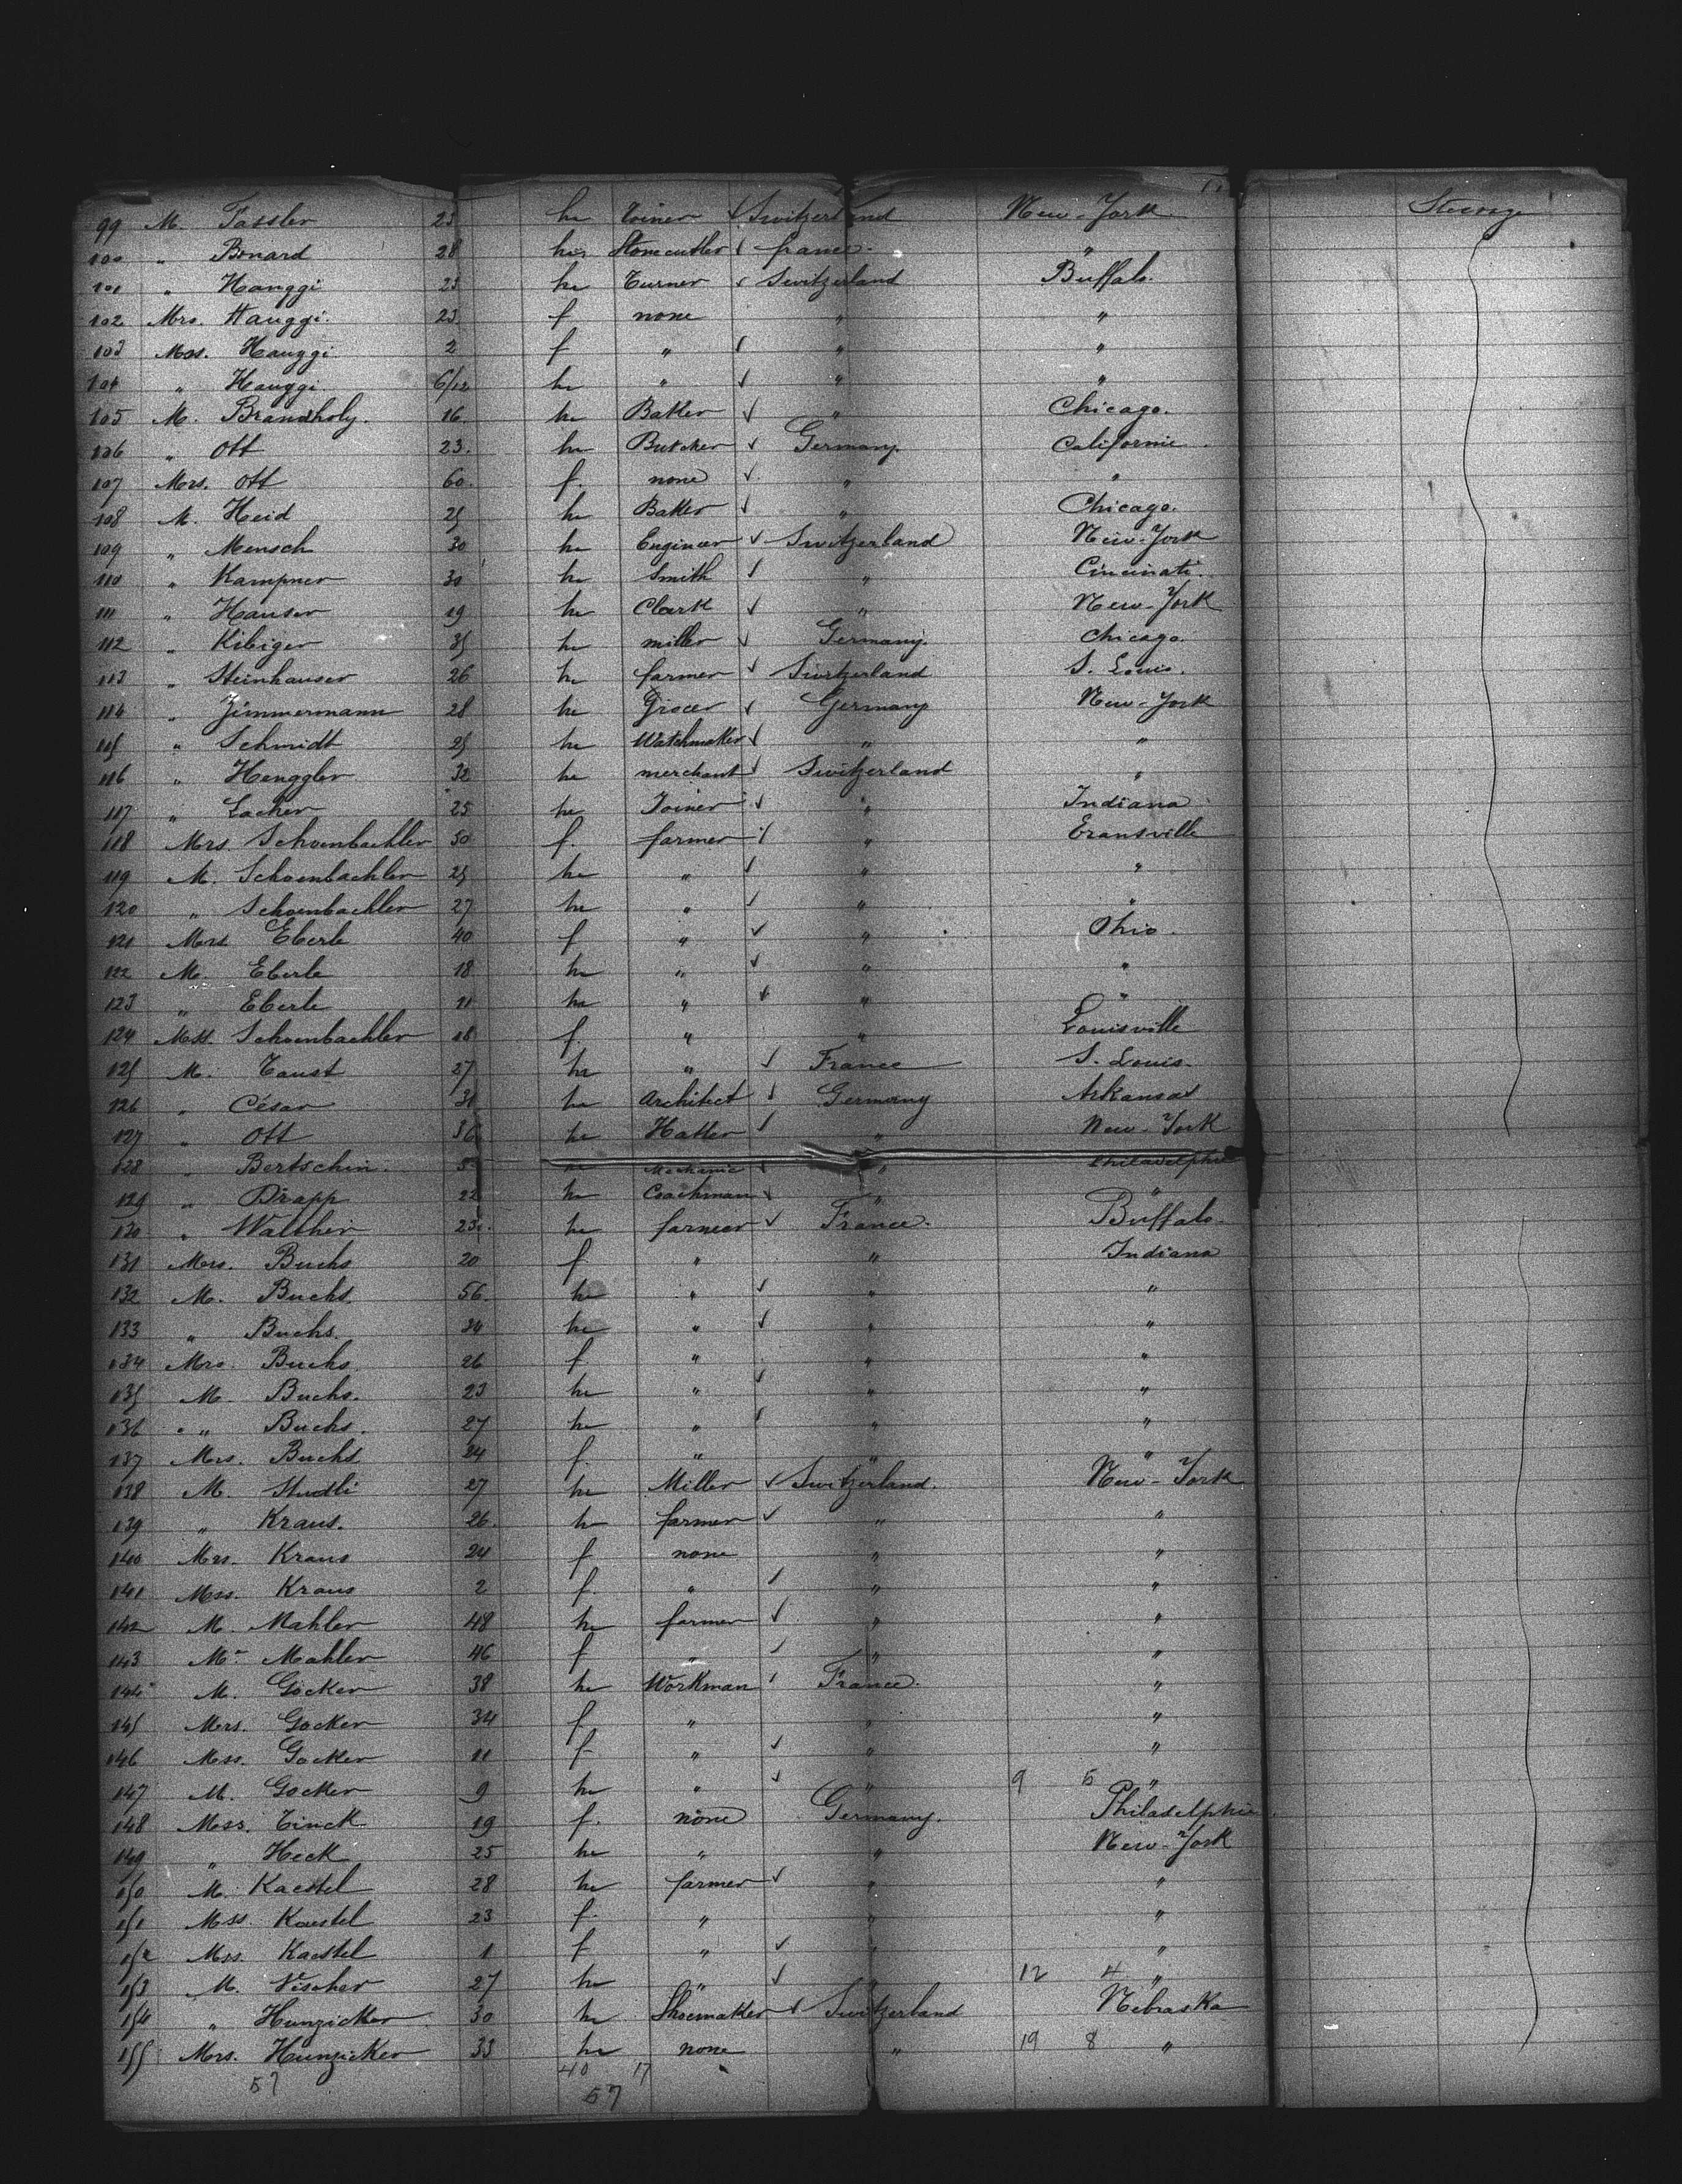 99 M. Fassler 25 he Joiner Switzerland New-York Steerage
100 " Bonard 28 he Stonecutter france "
101 " Hanggi 25 he Turner Switzerland Buffalo.
102 Mrs. Hauggi. 23 f none " "
103 Mss. Hauggi 2 f " " "
104 " Hauggi 6/12 he " " "
105 M. Brandholy. 16 he Baker " Chicago.
106 " Ott 23. he Butcher Germany. Californie
107 Mrs. Ott 60. f. none " "
108 M. Heid 25 he Baker " Chicago.
109 " Mensch 30 he Engineer Switzerland New-York
110 " Kampner 30 he Smith " Cincinati.
111 " Hauser 19 he Clark " New-York
112 " Kibiger 35 he miller Germany. Chicago.
113 " Steinhauser 26 he farmer Switzerland S. Louis.
114 " Zimmermann 28 he Grocer Germany New-York
115 " Schmidt 25 he Watchmaker " "
116 " Henggler 32 he merchant Switzerland "
117 " Lacher 25 he Joiner " Indiana
118 Mrs. Schoenbachler 50 f. farmer " Evansville
119 M. Schoenbachler 25 he " " "
120 " Schoenbachler 27 he " " "
121 Mrs Eberle 40 f " " Ohio.
122 M. Eberle 18 he " " "
123 " Eberle 11 he " " "
124 Mss. Schoenbachler 18 f. " " Louisville
125 M. Faust 27 he " France S. Louis.
126 " César 31 he Architect Germany Arkansas
127 " Ott 36 he Hatter " New-York
128 " Bertschin. he Mechanic " Philadelphie
129 " Drapp 22 he Coachman " "
130 " Walther 23. he farmer France. Buffalo.
131 Mrs. Buchs 20 f. " " Indiana
132 M. Buchs. 56. he " " "
133 " Buchs. 24 he " " "
134 Mrs. Buchs 26 f. " " "
135 M. Buchs. 23 he " " "
136 " Buchs. 27 he " " "
137 Mrs. Buchs 24 f. " " "
138 M. Studli 27 he Miller Switzerland. New-York
139 " Kraus. 26. he farmer " "
140 Mrs. Kraus 24 f none " "
141 Mss. Kraus 2 f. " " "
142 M. Mahler 48 he farmer " "
143 Mr Mahler 46 f " " "
144 M. Gocker 38 he Workman France. "
145 Mrs. Gocker 34 f " " "
146 Mss. Gocker 11 f " " "
147 M. Gocker 9 he " " 9 5 "
148 Mss. Tinck 19 f. none Germany. Philadelphie.
149 " Heck 25 he " " New-York
150 M. Kaestel 28 he farmer " "
151 Mss. Kaestel 23 f. " " "
152 Mss. Kaestel 1 f " " "
153 M. Vischer 27 he " " 12 4 "
154 " Hunzicker 30 he Shoemaker Switzerland Nebraska
155 Mrs. Hunzicker 33 he none " 19 8 "
57 40 17
57